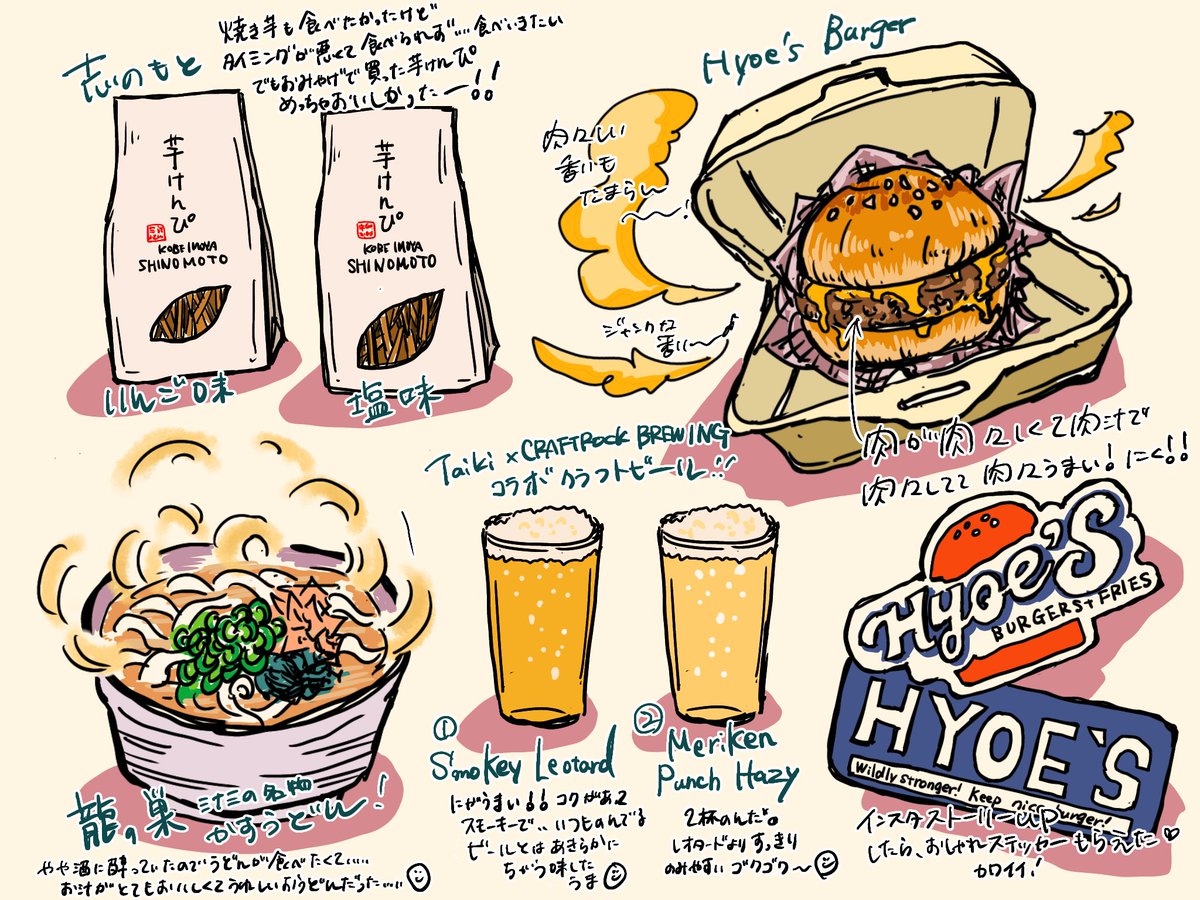 志のもと
焼き芋も食べたかったけど
タイミングが悪くて食べられず…食べいきたい
でもおみやげで買った芋けんぴ
めっちゃおいしかったー!!
芋けんぴ
KOBE IMOYA
SHINOMOTO
りんご味
芋けんぴ
KOBE IMOYA
SHINOMOTO
塩味
Hyoe's Burger
肉々しい
香りも
たまらん
〜!
ジャンクな
香り〜♪
肉が肉々しくて肉汁で
肉々してて肉々うまい!にく!!
Taiki×CRAFTROCK BREWING
コラボクラフトビール!!
①
Smokey Leotard
にがうまい!!コクがあって
スモーキーで..いつものんでる
ビールとはあきらかに
ちがう味した
うま
②
Meriken
Punch Hazy
2杯のんだ。
レオタードよりすっきり
のみやすいゴクゴク〜
龍の巣 ミナミの名物
かすうどん!
やや酒に酔っていたのでうどんが食べたくて……
お汁がとてもおいしくてうれしいおうどんだった……
Hyoe'S
BURGERS+FRIES
HYOE'S
Wildly stronger! Keep nice burger!
インスタストーリーにup
したら、おしゃれステッカーもらえた♡
カワイイ!